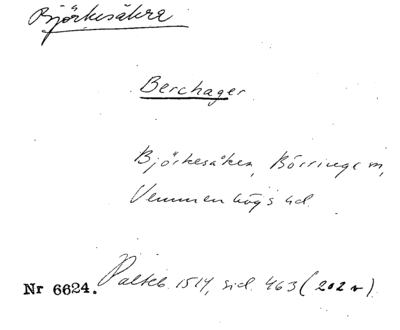 Björkesåkra
Berchager
Björkesåkra, Börringe sn,
Vemmenhögs hd.
Nr 6624. Palteb. 1514, sid. 463 (202 r).